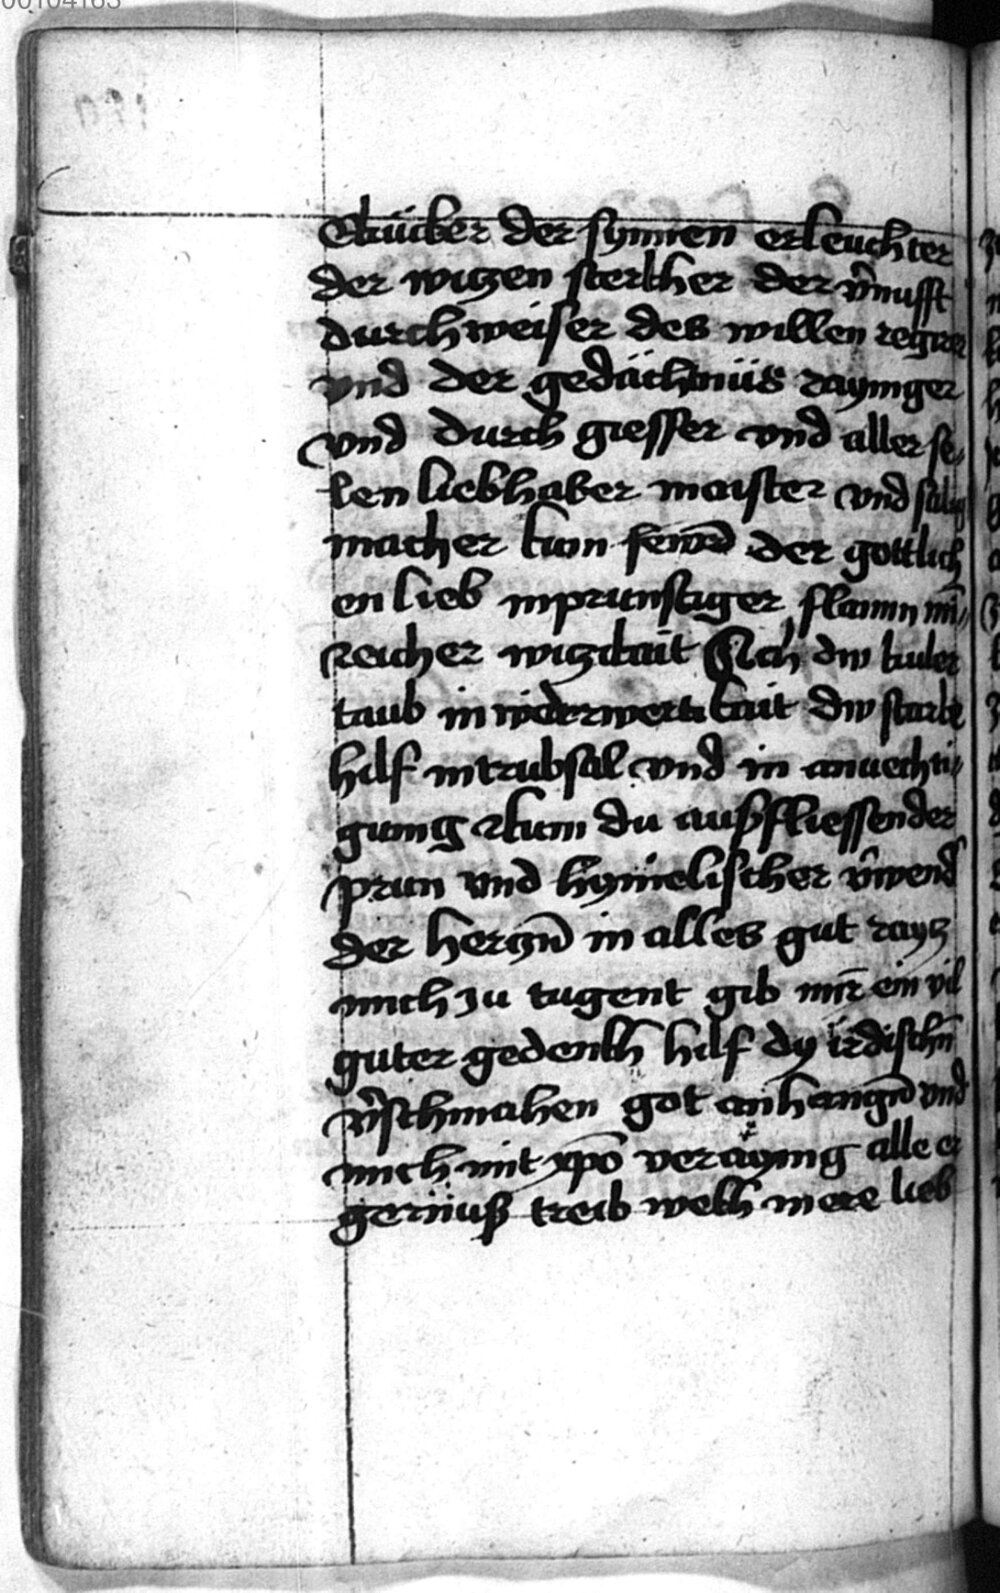 00104163
der synnen erleuchter
der wiczen sterkher der v̄nufft
durchweiser des willen regirer
vnd der gedächtnüs rayniger
vnd durch giesser vnd aller se„
len liebhaber maister vnd salig
macher kum der gottlich
en lieb inprunstiger flamm
reicher Ach dw kuler
taub in widerwertikait dw stark
hilf in trubsal vnd in anuechti„
gung kum du ausfliessender
prun vnd hymelischer
der herczn̄ in alles gut raycz
mich zu tugent gib mir ein vil
guter gedenkh̄ hilf dy irdischn̄
v̄schmahen got anhangn̄ vnd
mich mit xp̄o veraynig alle er
gernuß treib welh̄ mere lieb